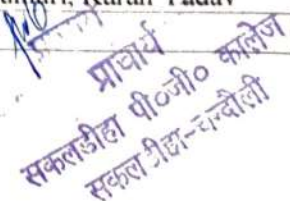 Karan Yadav
प्राचार्य
सकलडीहा पी०जी० कालेज
सकलडीहा-चन्दौली